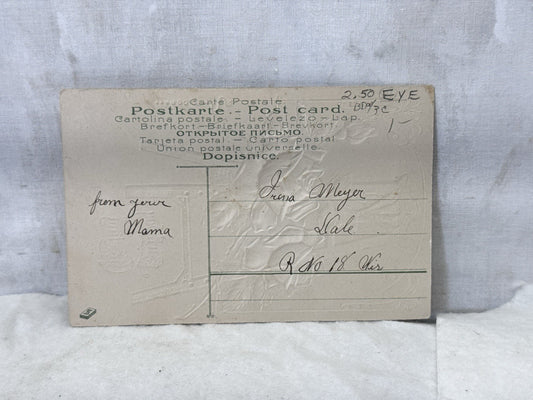 2.50 EYE
Carte Postale
Postkarte - Post card.
1-
Cartolina postale. - Levelezo - Lap.
Brefkort-Briefkaart-Brevkort.
ОТКРЫТОЕ ПИСЬМО.
Tarjeta postal. - Carto postal
Union postale universelle.
Dopisnice.
from your
Mama
Irma Meyer
Dale
R No 18 Wis